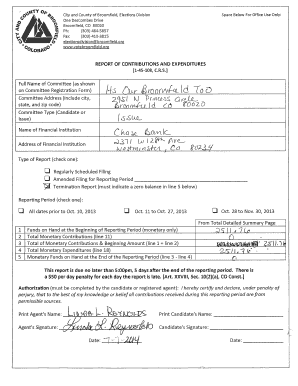 City and County of Broomfield, Elections Division
One DesCombes Drive
Broomfield, CO 80020
Ph: (303) 464-5857
Fax: (303) 438-5815
electiondivision@broomfield.org
www.votebroomfield.org
Space Below For Office Use Only
CITY AND COUNTY OF BROOMFIELD
COLORADO
REPORT OF CONTRIBUTIONS AND EXPENDITURES
[1-45-108, C.R.S.]
Full Name of Committee (as shown on Committee Registration Form) It's Our Broomfield Too
Committee Address (include city, state, and zip code) 2951 N Princess Circle
Broomfield CO 80020
Committee Type (Candidate or Issue) Issue
Name of Financial Institution Chase Bank
Address of Financial Institution 2371 W 128th Ave
Westminster, CO 80234
Type of Report (check one):
Regularly Scheduled Filing
Amended Filing for Reporting Period
Termination Report (must indicate a zero balance in line 5 below)
Reporting Period (check one):
All dates prior to Oct. 10, 2013
Oct 11 to Oct. 27, 2013
Oct. 28 to Nov. 30, 2013
From Total Detailed Summary Page
1 Funds on Hand at the Beginning of Reporting Period (monetary only) 2511.76
2 Total Monetary Contributions (line 11) 0
3 Total of Monetary Contributions & Beginning Amount (line 1 + line 2) 2511.76
4 Total Monetary Expenditures (line 18) 2511.76
5 Monetary Funds on Hand at the End of Reporting Period (line 3 - line 4) 0
This report is due no later than 5:00pm, 5 days after the end of the reporting period. There is
a $50 per day penalty for each day the report is late. (Art. XXVIII, Sec. 10(2)(a), CO Const.)
Authorization (must be completed by the candidate or registered agent): I hereby certify and declare, under penalty of
perjury, that to the best of my knowledge or belief all contributions received during this reporting period are from
permissible sources.
Print Agent's Name: Linda L. Reynolds Print Candidate's Name:
Agent's Signature: Linda L. Reynolds Candidate's Signature:
Date: 7-7-2014 Date: